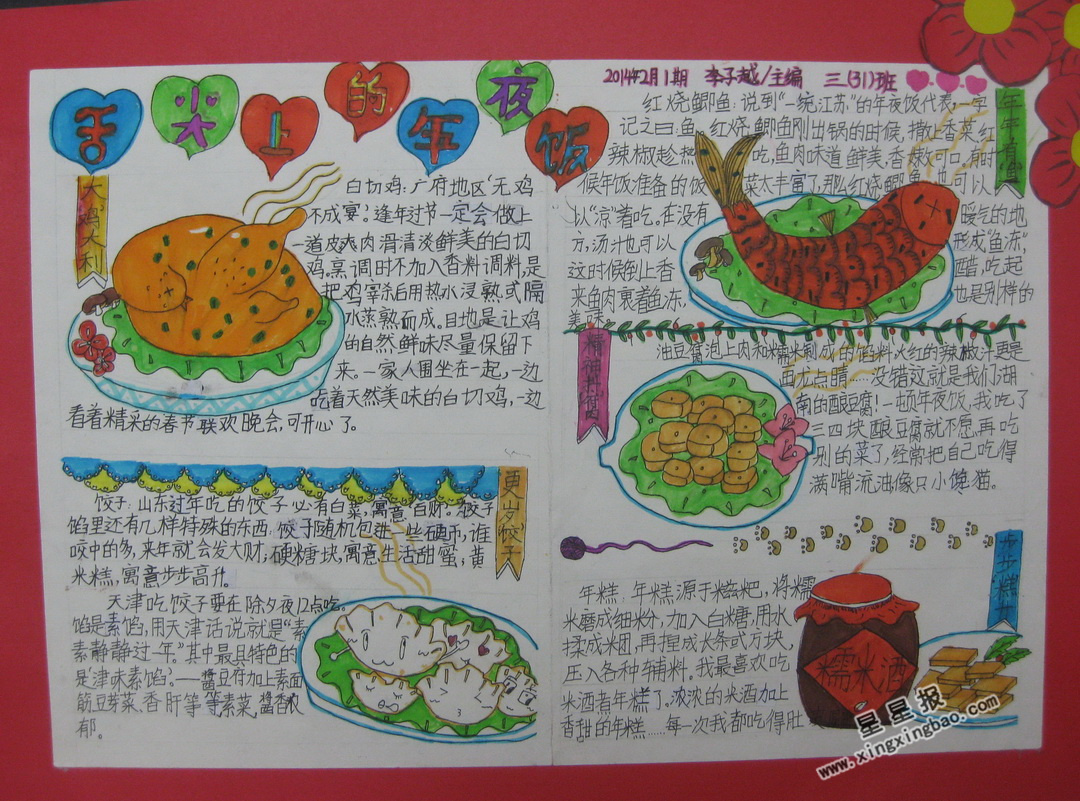 舌尖上的年夜饭
2014年2月1期 李子越/主编 三(31)班
大鸡大利
白切鸡:广府地区"无鸡
不成宴"。逢年过节一定会做上
一道皮爽肉滑清淡鲜美的白切
鸡,烹调时不加入香料调料,是
把鸡宰杀后用热水浸熟或隔
水蒸熟而成。目地是让鸡
的自然鲜味尽量保留下
来。一家人围坐在一起,一边
吃着天然美味的白切鸡,一边
看着精采的春节联欢晚会,可开心了。
更入岁(饺)子
饺子:山东过年吃的饺子必有白菜,寓意"百财"。饺子
馅里还有几样特殊的东西。饺子随机包进一些硬币,谁
咬中的多,来年就会发大财,硬糖块,寓意生活甜蜜,黄
米糕,寓意步步高升。
天津吃饺子要在除夕夜12点吃。
馅是素馅,用天津话说就是"素
素静静过一年。"其中最具特色的
是津味素馅。——酱豆付加上素面
筋豆芽菜,香肝等等素菜,酱香浓
郁。
年年有鱼
红烧鲫鱼:说到"一统江苏"的年夜饭代表,一字
记之曰:鱼。红烧鲫鱼刚出锅的时候,撒上香菜,红
辣椒趁热吃,鱼肉味道鲜美,香辣可口,有时
候年饭准备的饭菜太丰富了,那么红烧鲫鱼也可以
以"凉"着吃。在没有暖气的地
方,汤汁也可以形成"鱼冻",
这时候倒上香醋,吃起
来鱼肉裹着鱼冻,也是别样的
美味。
精神抖(豆)
油豆腐泡上肉和糯米制成的馅料,火红的辣椒汁更是
画龙点睛……没错这就是我们湖
南的酿豆腐!一顿年夜饭,我吃了
三四块酿豆腐就不愿再吃
别的菜了,经常把自己吃得
满嘴流油,像只小馋猫。
步步糕升
年糕:年糕源于糍粑,将糯
米磨成细米分,加入白糖,用水
揉成米团,再捏成长条或方块,
压入各种辅料。我最喜欢吃
米酒者年糕了。浓浓的米酒加上
香甜的年糕……每一次我都吃得肚
糯米酒
星星报
www.xingxingbao.com